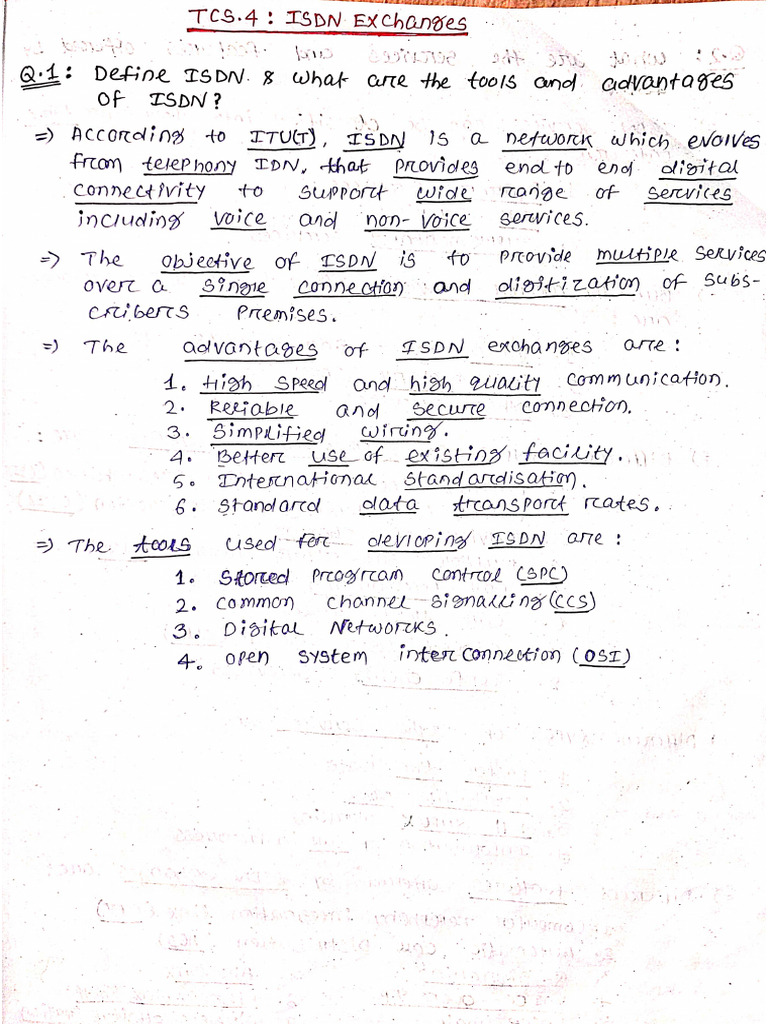 TCS.4 : ISDN Exchanges
Q.1 : Define ISDN & what are the tools and advantages
of ISDN?
=> According to ITU(T), ISDN is a network which evolves
from telephony IDN, that provides end to end digital
connectivity to support wide range of services
including voice and non-voice services.
=> The objective of ISDN is to provide multiple services
over a single connection and digitization of subs-
cribers premises.
=> The advantages of ISDN exchanges are :
1. High speed and high quality communication.
2. Reliable and secure connection.
3. Simplified wiring.
4. Better use of existing facility.
5. International standardisation.
6. Standard data transport rates.
=> The tools used for devloping ISDN are :
1. Stored program control (SPC)
2. Common channel signalling (CCS)
3. Digital Networks.
4. Open system interconnection (OSI)